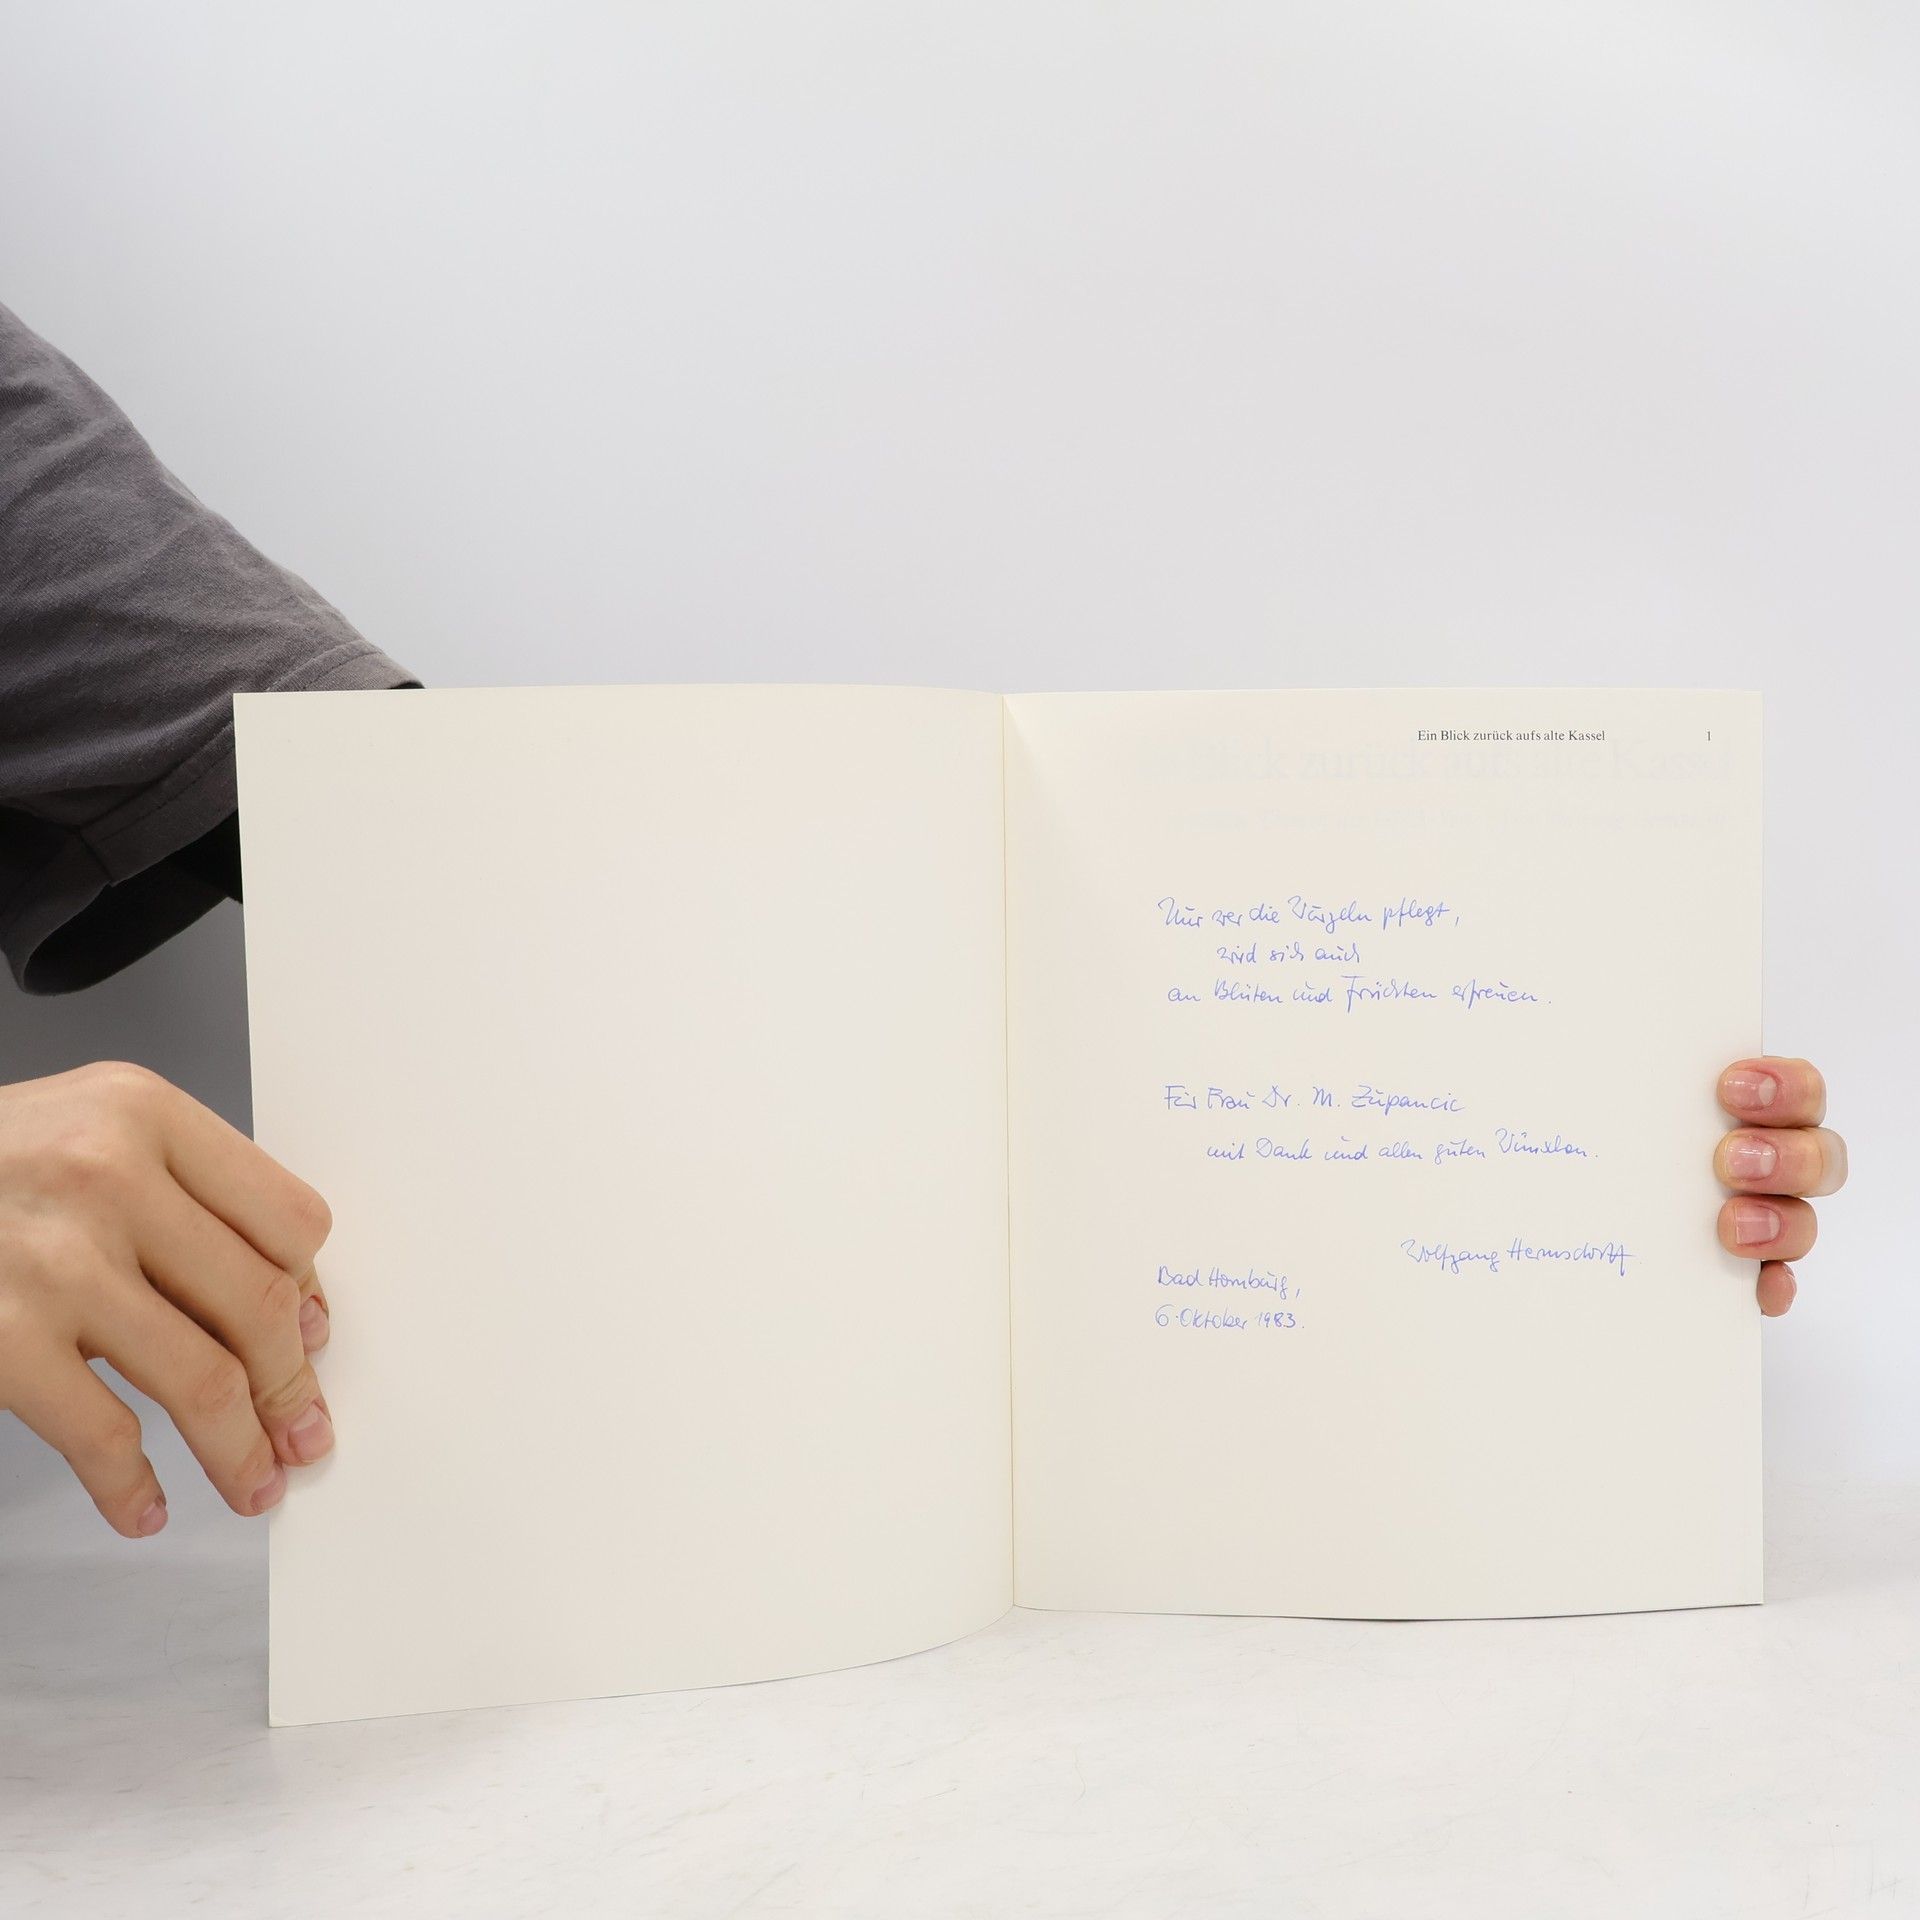 Ein Blick zurück aufs alte Kassel 1
Ein Blick zurück aufs alte Kassel
Nur wer die Wurzeln pflegt,
wird sich auch
an Blüten und Früchten erfreuen.
Für Frau Dr. M. Zupancic
mit Dank und allen guten Wünschen.
Wolfgang Hermsdorff
Bad Homburg,
6. Oktober 1983.